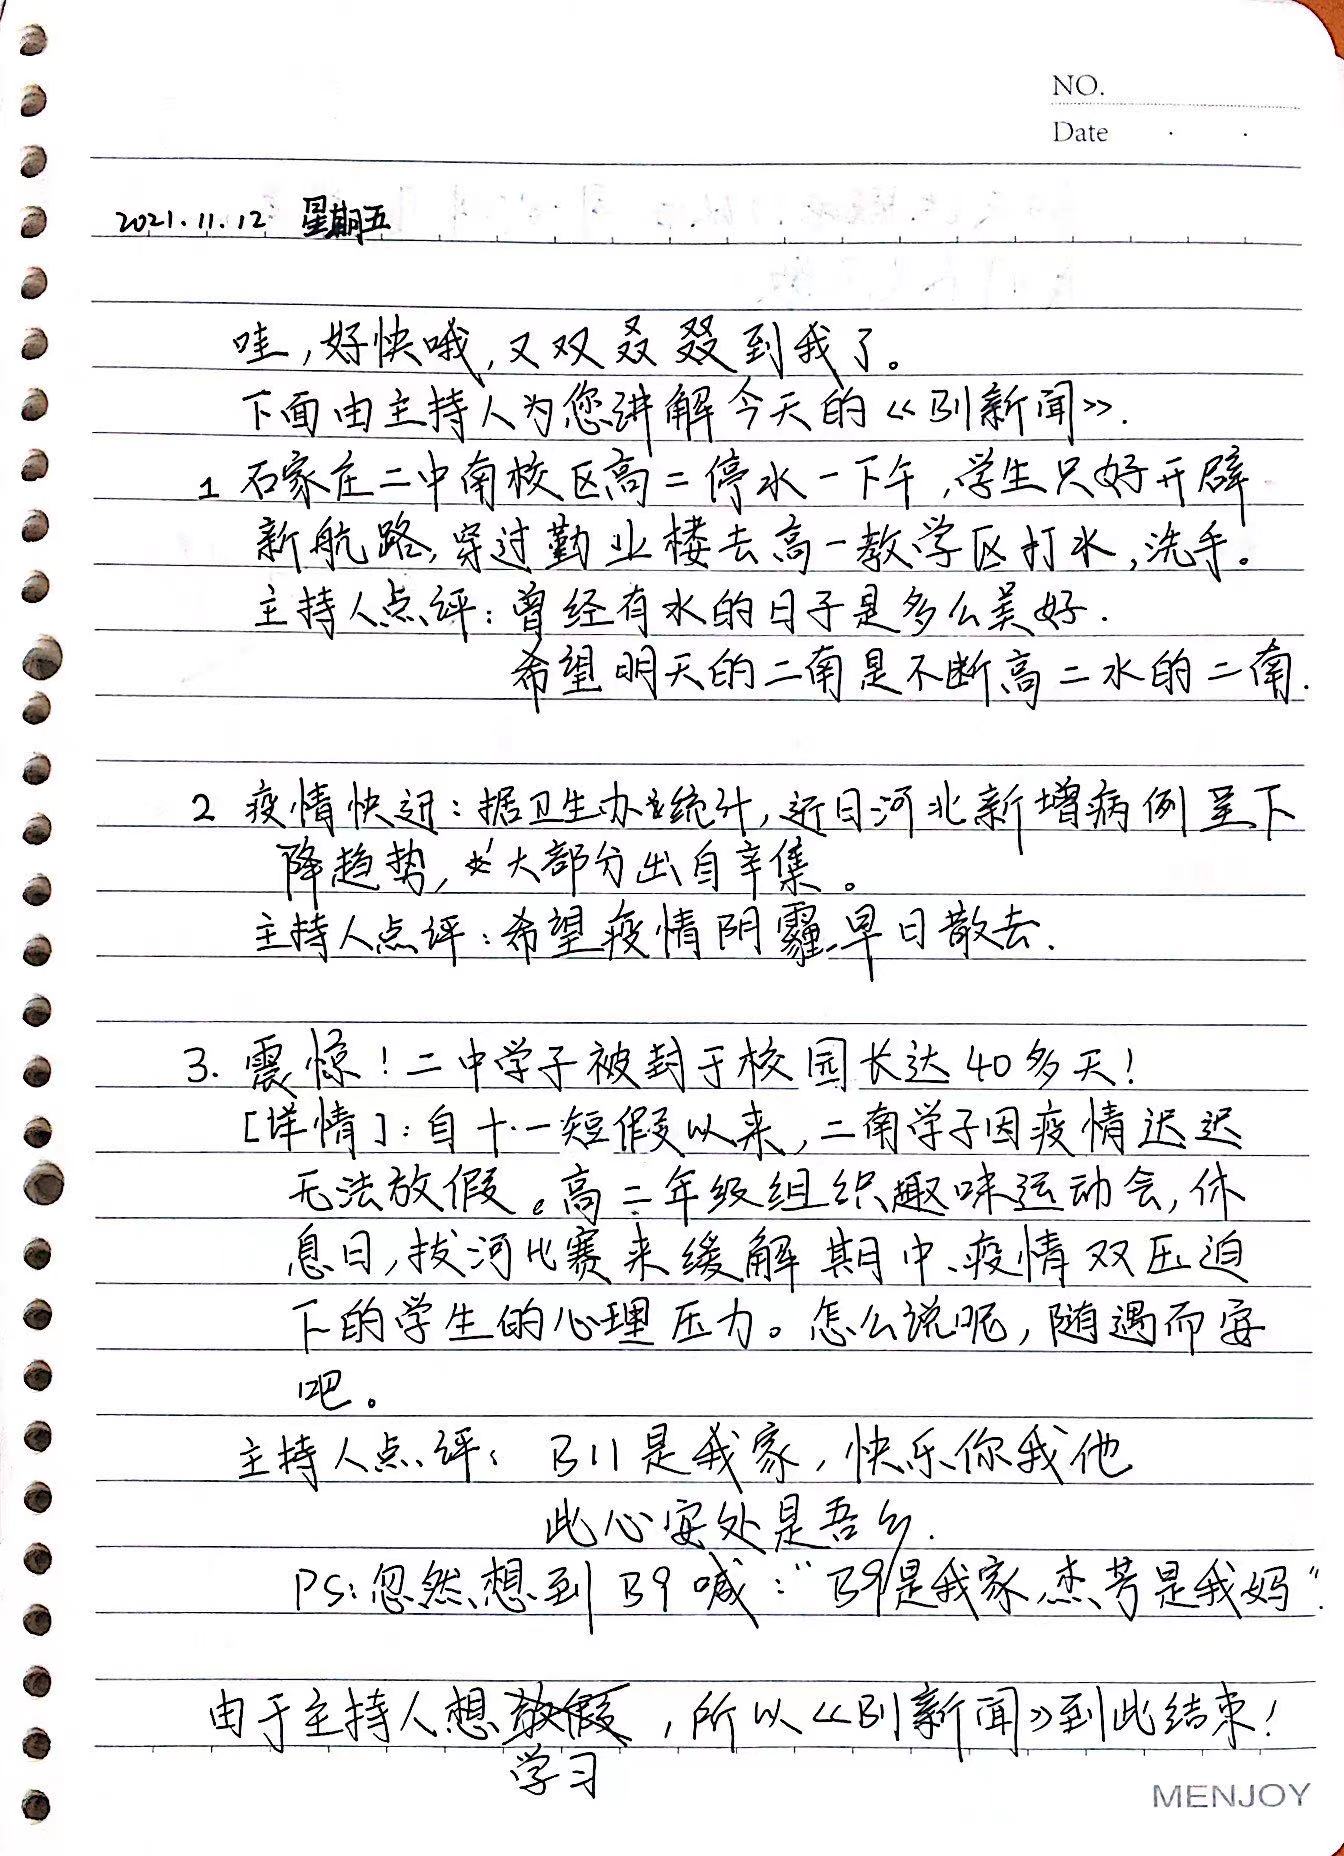 NO.
Date
2021.11.12 星期五
哇,好快哦,又双叒叕到我了。
下面由主持人为您讲解今天的《B11新闻》.
1 石家庄二中南校区高二停水一下午,学生只好开辟
新航路,穿过勤业楼去高一教学区打水,洗手。
主持人点评:曾经有水的日子是多么美好.
希望明天的二南是不断高二水的二南.
2 疫情快迅:据卫生办统计,近日河北新增病例呈下
降趋势,大部分出自辛集。
主持人点评:希望疫情阴霾早日散去.
3. 震惊!二中学子被封于校园长达40多天!
[详情]:自十·一短假以来,二南学子因疫情迟迟
无法放假。高二年级组织趣味运动会,休
息日,拔河比赛来缓解期中、疫情双压迫
下的学生的心理压力。怎么说呢,随遇而安
吧。
主持人点评: B11是我家,快乐你我他
此心安处是吾乡.
PS:忽然想到B9喊:“B9是我家,杰芳是我妈”.
由于主持人想放假,所以《B11新闻》到此结束!
学习
MENJOY